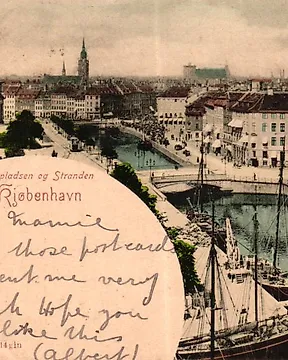 pladsen og Stranden
Kjøbenhavn
Mamie
those postcard
ent me very
Hope you
like this
(Albert)